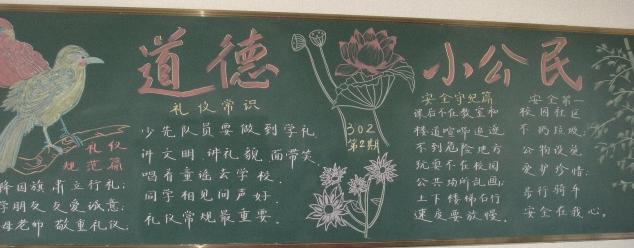 道德
小公民
礼仪
规范篇
降国旗 肃立行礼;
学朋友 友爱诚意;
母老师 敬重礼仪.
礼仪常识
少先队员要做到学礼
讲文明.讲礼貌.面带笑.
唱着童谣去学校.
同学相见问声好.
礼仪常规最重要.
302
第2期
安全守纪篇
课后不在教室和
楼道喧哗追逐
不到危险地方
玩耍不在校园
公共场所乱画;
上下楼梯右行
速度要放慢.
安全第一
校园社区
不扔垃圾;
公物设施
爱护珍惜;
步行骑车
安全在我心.